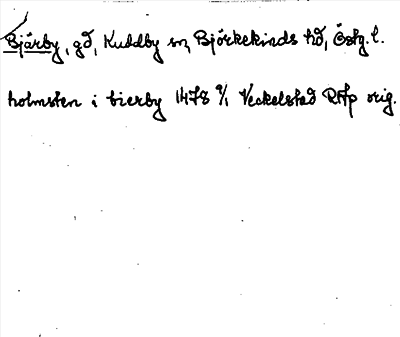 Bjärby, gd, Kuddby sn, Björkekinds hd, Östg. l.
holmsten i bierby 1478 9/1 Veckelstad RAp orig.